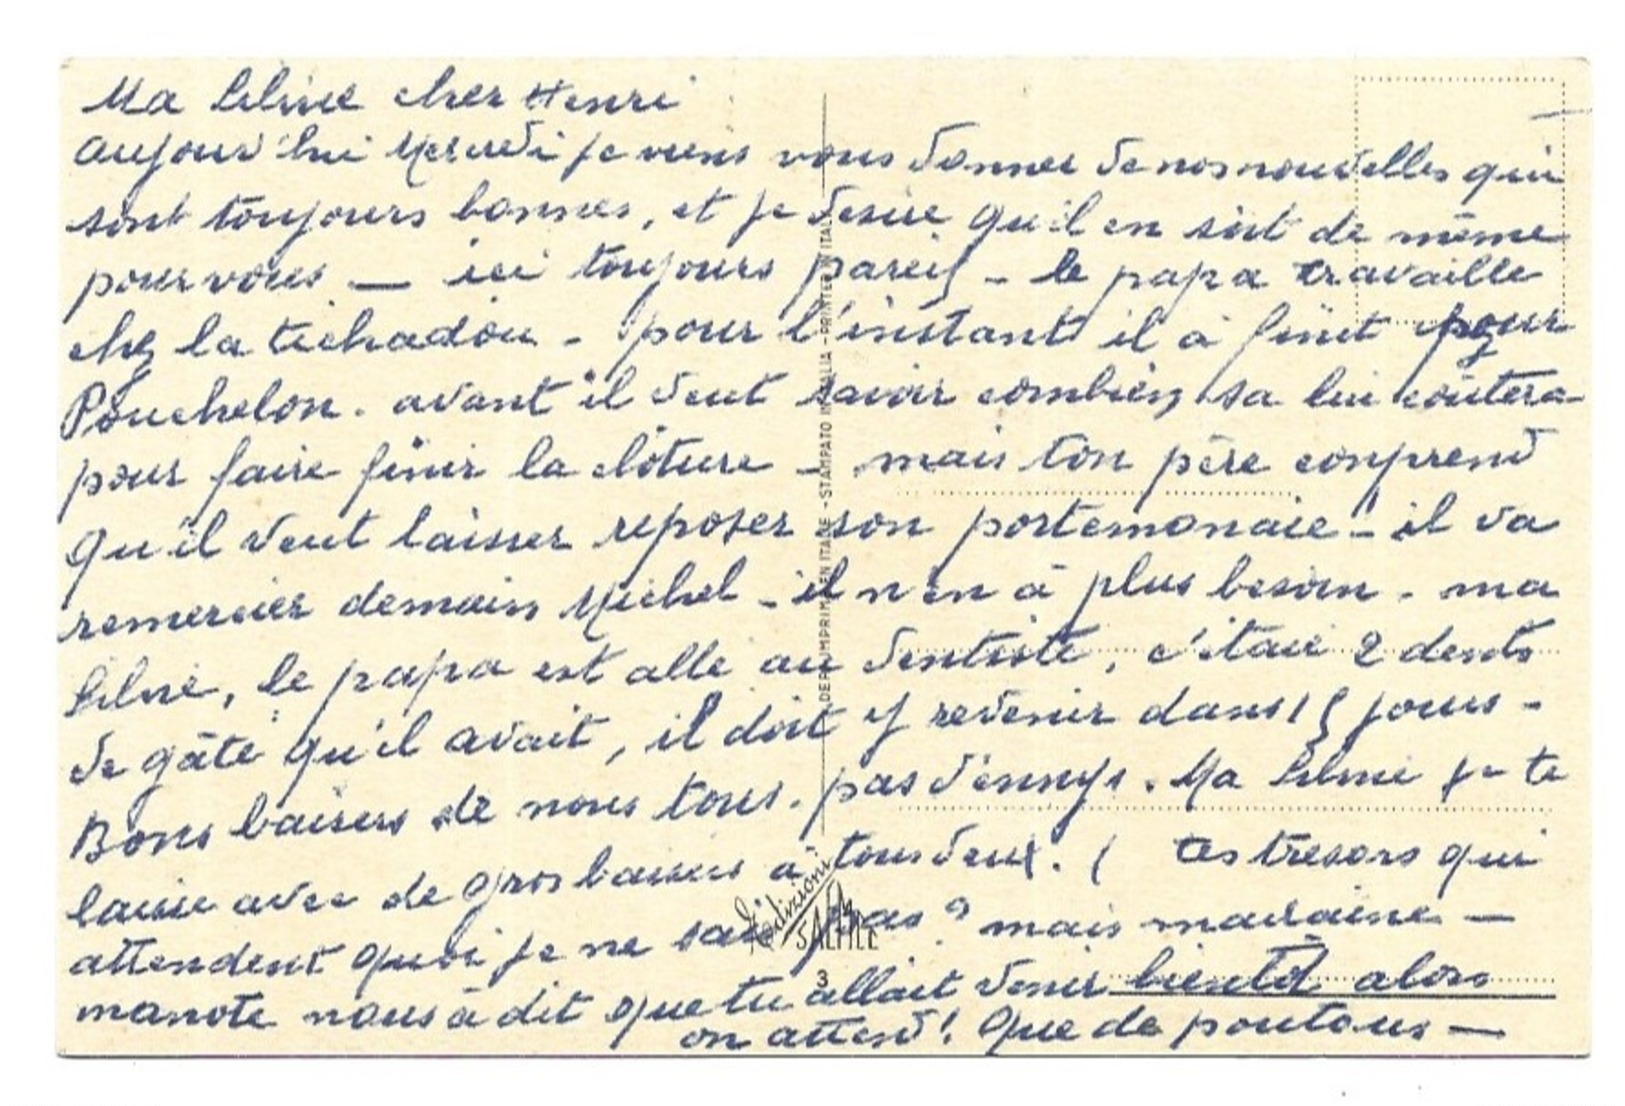 Ma Liline cher Henri
aujourd'hui Mercredi je viens vous donner de nos nouvelles qui
sont toujours bonnes, et je desire qu'il en soit de même
pour vous — ici toujours pareil - le papa travaille
chez la tichadou - pour l'instant il à finit pour
Pouchelon. avant il veut savoir combien sa lui coûtera
pour faire finir la clôture - mais ton père comprend
qu'il veut laisser reposer son portemonaie - il va
remercier demain Michel - il n'en à plus besoin - ma
Liline, le papa est alle au dentiste, c'etait 2 dents
de gâte qu'il avait, il doit y revenir dans 15 jours -
Bons baisers de nous tous. pas d'ennys. Ma Liline je te
laisse avec de gros baisers à tous deux. ( tes tresors qui
attendent quoi je ne sais pas ? mais marraine —
manote nous à dit que tu allait venir bientôt alors
on attend ! que de poutous —
DEP. IMPRIMÉ EN ITALIE - STAMPATO IN ITALIA - PRINTED IN ITALY
Edizioni
SALMIE
3